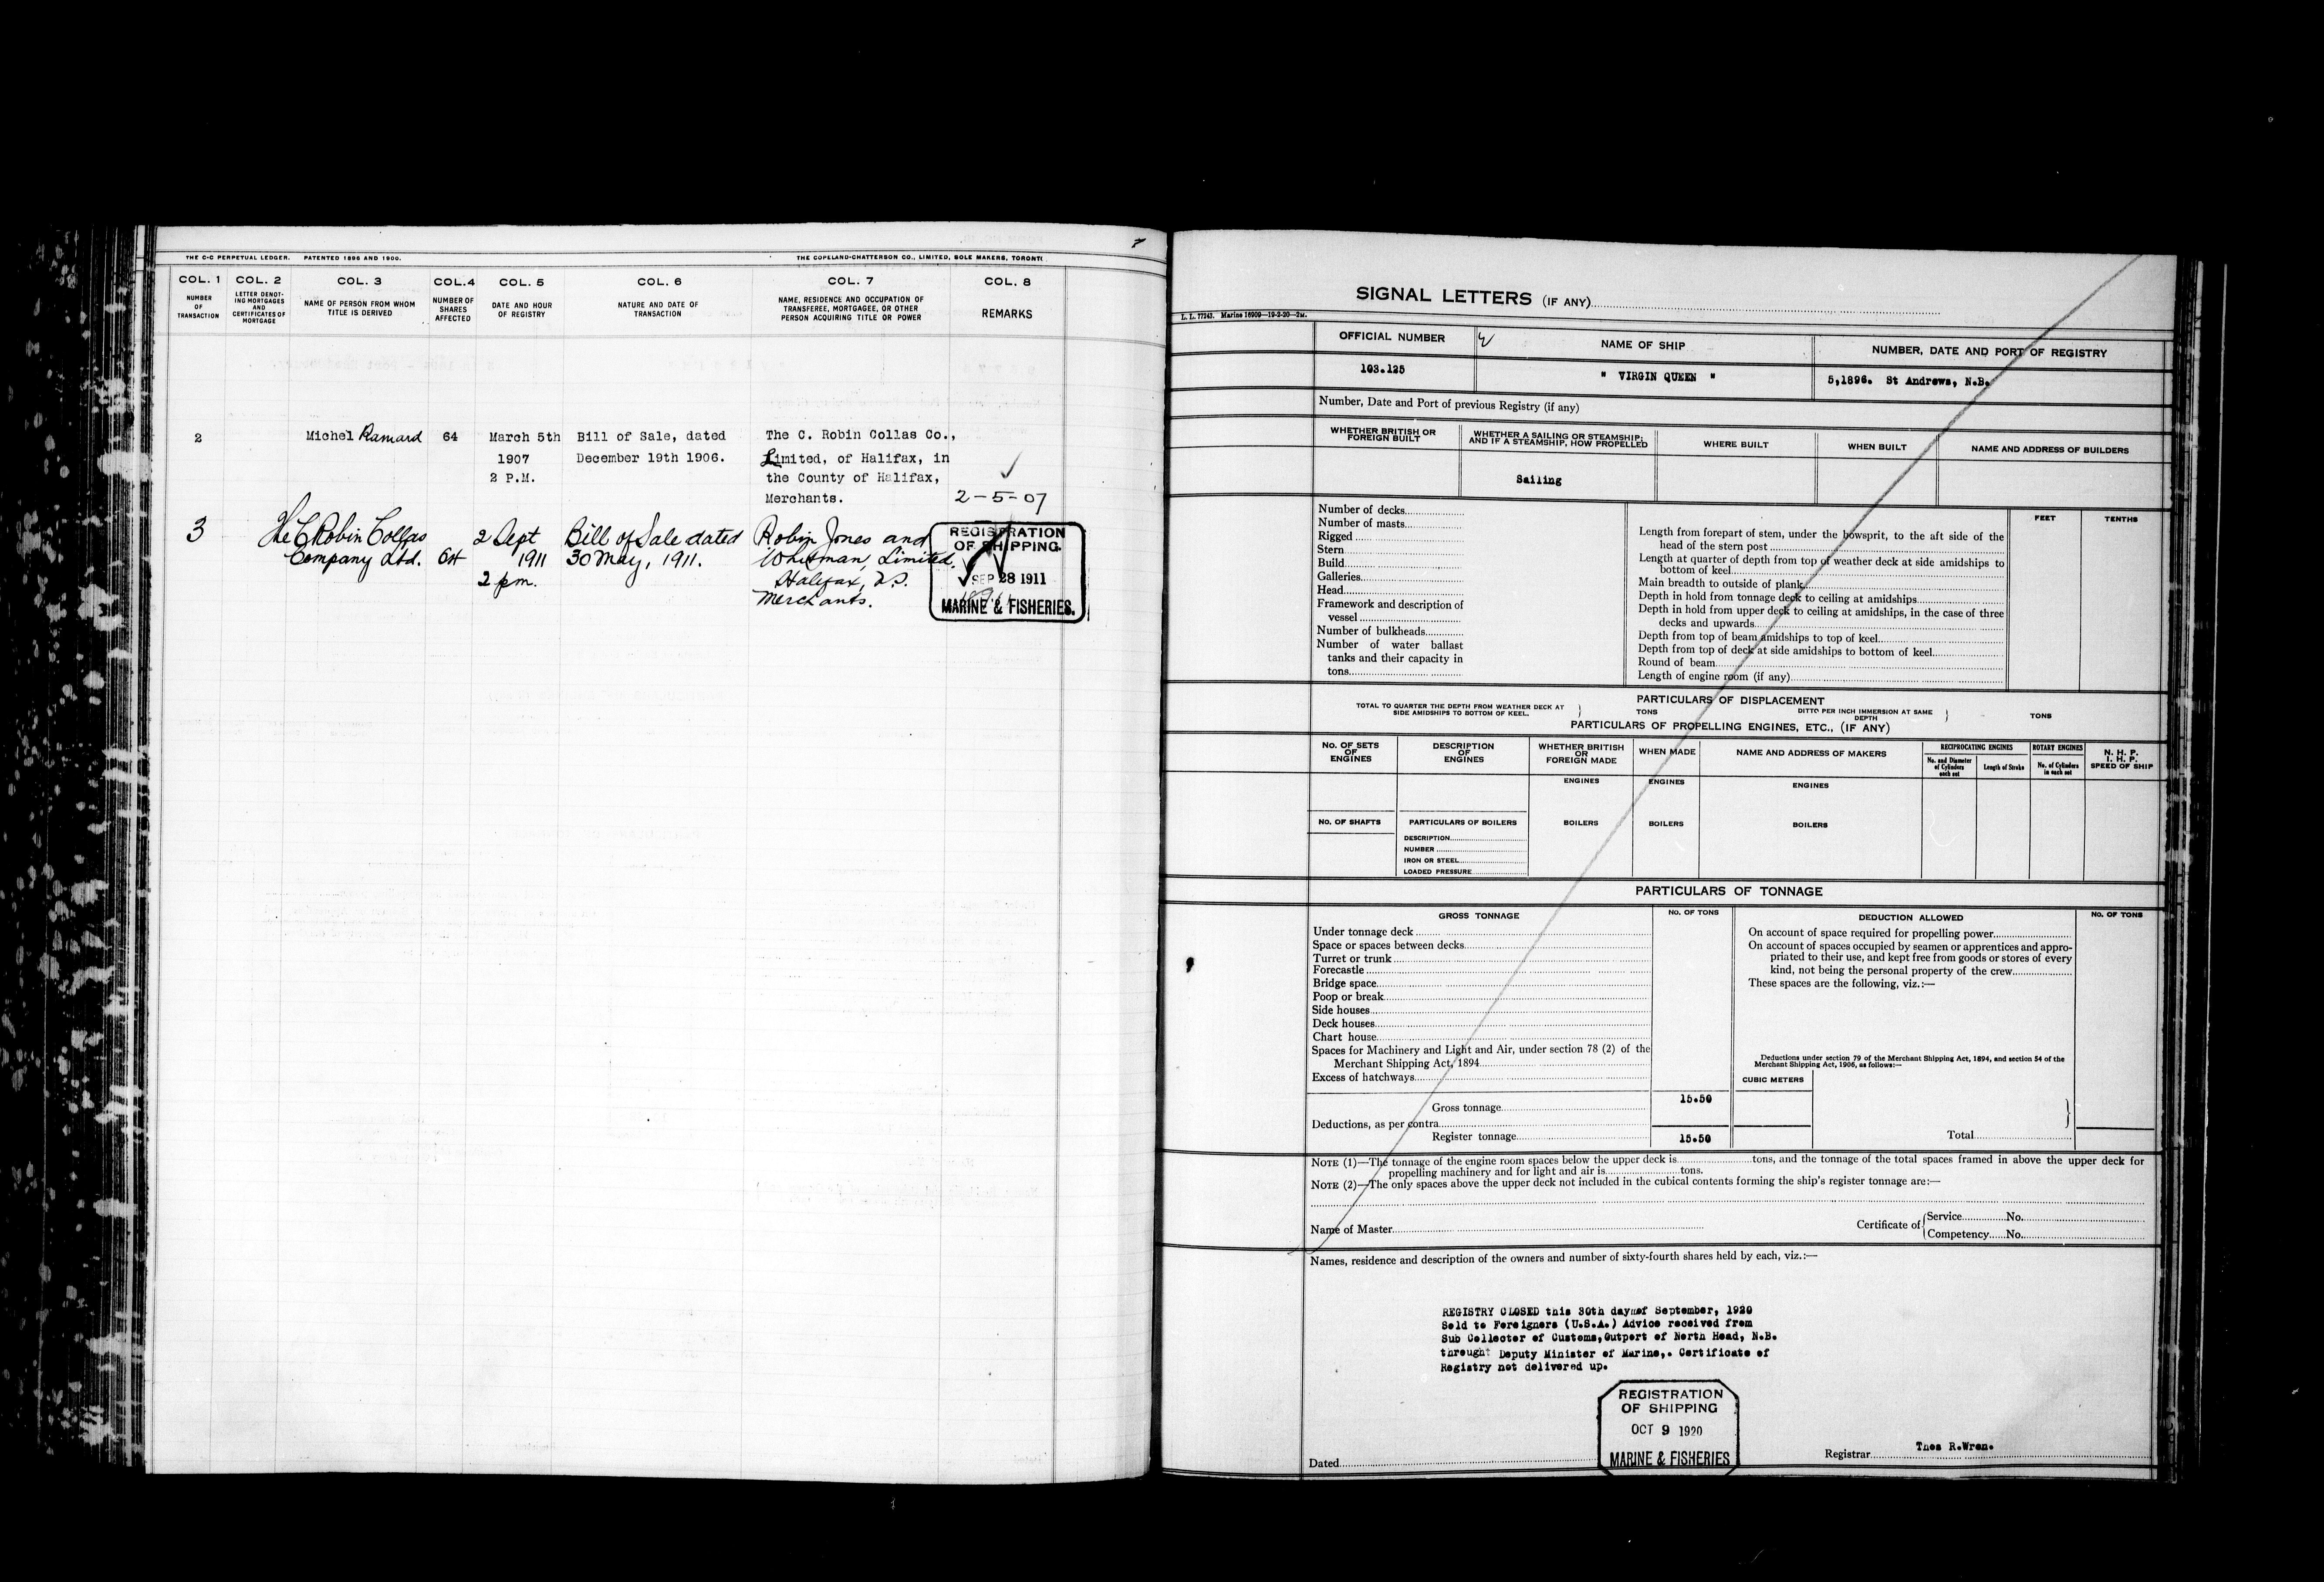 7
THE C-C PERPETUAL LEDGER. PATENTED 1896 AND 1900.
THE COPELAND-CHATTERSON CO., LIMITED, SOLE MAKERS, TORONTO
COL. 1
NUMBER OF TRANSACTION
COL. 2
LETTER DENOTING MORTGAGES AND CERTIFICATES OF MORTGAGE
COL. 3
NAME OF PERSON FROM WHOM TITLE IS DERIVED
COL. 4
NUMBER OF SHARES AFFECTED
COL. 5
DATE AND HOUR OF REGISTRY
COL. 6
NATURE AND DATE OF TRANSACTION
COL. 7
NAME, RESIDENCE AND OCCUPATION OF TRANSFEREE, MORTGAGEE, OR OTHER PERSON ACQUIRING TITLE OR POWER
COL. 8
REMARKS
2 Michel Ramard 64 March 5th Bill of Sale, dated The C. Robin Collas Co.,
1907 December 19th 1906. Limited, of Halifax, in
2 P.M. the County of Halifax,
Merchants. 2-5-07
3 The C Robin Collas 2 Sept Bill of Sale dated Robin Jones and
Company Ltd. 64 1911 30 May, 1911. Whitman, Limited,
2 pm. Halifax, N.S.
Merchants.
REGISTRATION
OF SHIPPING.
SEP 28 1911
MARINE & FISHERIES.
SIGNAL LETTERS (IF ANY)
L. L. 77243. Marine 16909—19-2-20—2M.
OFFICIAL NUMBER
NAME OF SHIP
NUMBER, DATE AND PORT OF REGISTRY
103.125
" VIRGIN QUEEN "
5,1896. St Andrews, N.B.
Number, Date and Port of previous Registry (if any)
WHETHER BRITISH OR FOREIGN BUILT
WHETHER A SAILING OR STEAMSHIP; AND IF A STEAMSHIP, HOW PROPELLED
WHERE BUILT
WHEN BUILT
NAME AND ADDRESS OF BUILDERS
Sailing
Number of decks
Number of masts
Rigged
Stern
Build
Galleries
Head
Framework and description of
vessel
Number of bulkheads
Number of water ballast
tanks and their capacity in
tons
FEET
TENTHS
Length from forepart of stem, under the bowsprit, to the aft side of the
head of the stern post
Length at quarter of depth from top of weather deck at side amidships to
bottom of keel
Main breadth to outside of plank
Depth in hold from tonnage deck to ceiling at amidships
Depth in hold from upper deck to ceiling at amidships, in the case of three
decks and upwards
Depth from top of beam amidships to top of keel
Depth from top of deck at side amidships to bottom of keel
Round of beam
Length of engine room (if any)
PARTICULARS OF DISPLACEMENT
TOTAL TO QUARTER THE DEPTH FROM WEATHER DECK AT SIDE AMIDSHIPS TO BOTTOM OF KEEL.
TONS
DITTO PER INCH IMMERSION AT SAME DEPTH
TONS
PARTICULARS OF PROPELLING ENGINES, ETC., (IF ANY)
NO. OF SETS OF ENGINES
DESCRIPTION OF ENGINES
WHETHER BRITISH OR FOREIGN MADE
WHEN MADE
NAME AND ADDRESS OF MAKERS
RECIPROCATING ENGINES
No. and Diameter of Cylinders each set
Length of Stroke
ROTARY ENGINES
No. of Cylinders in each set
N. H. P.
I. H. P.
SPEED OF SHIP
ENGINES
ENGINES
ENGINES
NO. OF SHAFTS
PARTICULARS OF BOILERS
BOILERS
BOILERS
BOILERS
DESCRIPTION
NUMBER
IRON OR STEEL
LOADED PRESSURE
PARTICULARS OF TONNAGE
GROSS TONNAGE
NO. OF TONS
DEDUCTION ALLOWED
NO. OF TONS
Under tonnage deck
Space or spaces between decks
Turret or trunk
Forecastle
Bridge space
Poop or break
Side houses
Deck houses
Chart house
Spaces for Machinery and Light and Air, under section 78 (2) of the
Merchant Shipping Act, 1894
Excess of hatchways
Gross tonnage 15.50
Deductions, as per contra
Register tonnage 15.50
On account of space required for propelling power
On account of spaces occupied by seamen or apprentices and appro-
priated to their use, and kept free from goods or stores of every
kind, not being the personal property of the crew
These spaces are the following, viz.:—
Deductions under section 79 of the Merchant Shipping Act, 1894, and section 54 of the
Merchant Shipping Act, 1906, as follows:—
CUBIC METERS
Total
NOTE (1)—The tonnage of the engine room spaces below the upper deck is tons, and the tonnage of the total spaces framed in above the upper deck for
propelling machinery and for light and air is tons.
NOTE (2)—The only spaces above the upper deck not included in the cubical contents forming the ship's register tonnage are:—
Name of Master
Certificate of
Service No.
Competency No.
Names, residence and description of the owners and number of sixty-fourth shares held by each, viz.:—
REGISTRY CLOSED this 30th day of September, 1920
Sold to Foreigners (U.S.A.) Advice received from
Sub Collector of Customs,Outport of North Head, N.B.
throught Deputy Minister of Marine,. Certificate of
Registry not delivered up.
REGISTRATION
OF SHIPPING
OCT 9 1920
MARINE & FISHERIES
Dated
Registrar Thos R.Wren.